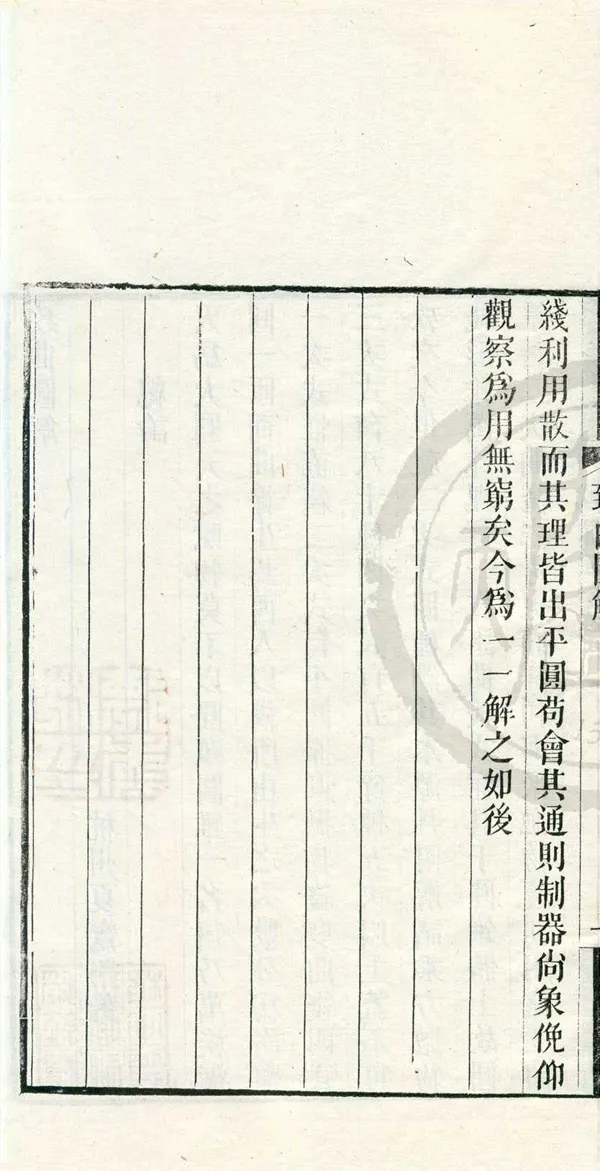 綫利用散而其理皆出平圓苟會其通則制器尙象俛仰
觀察爲用無窮矣今爲一一解之如後